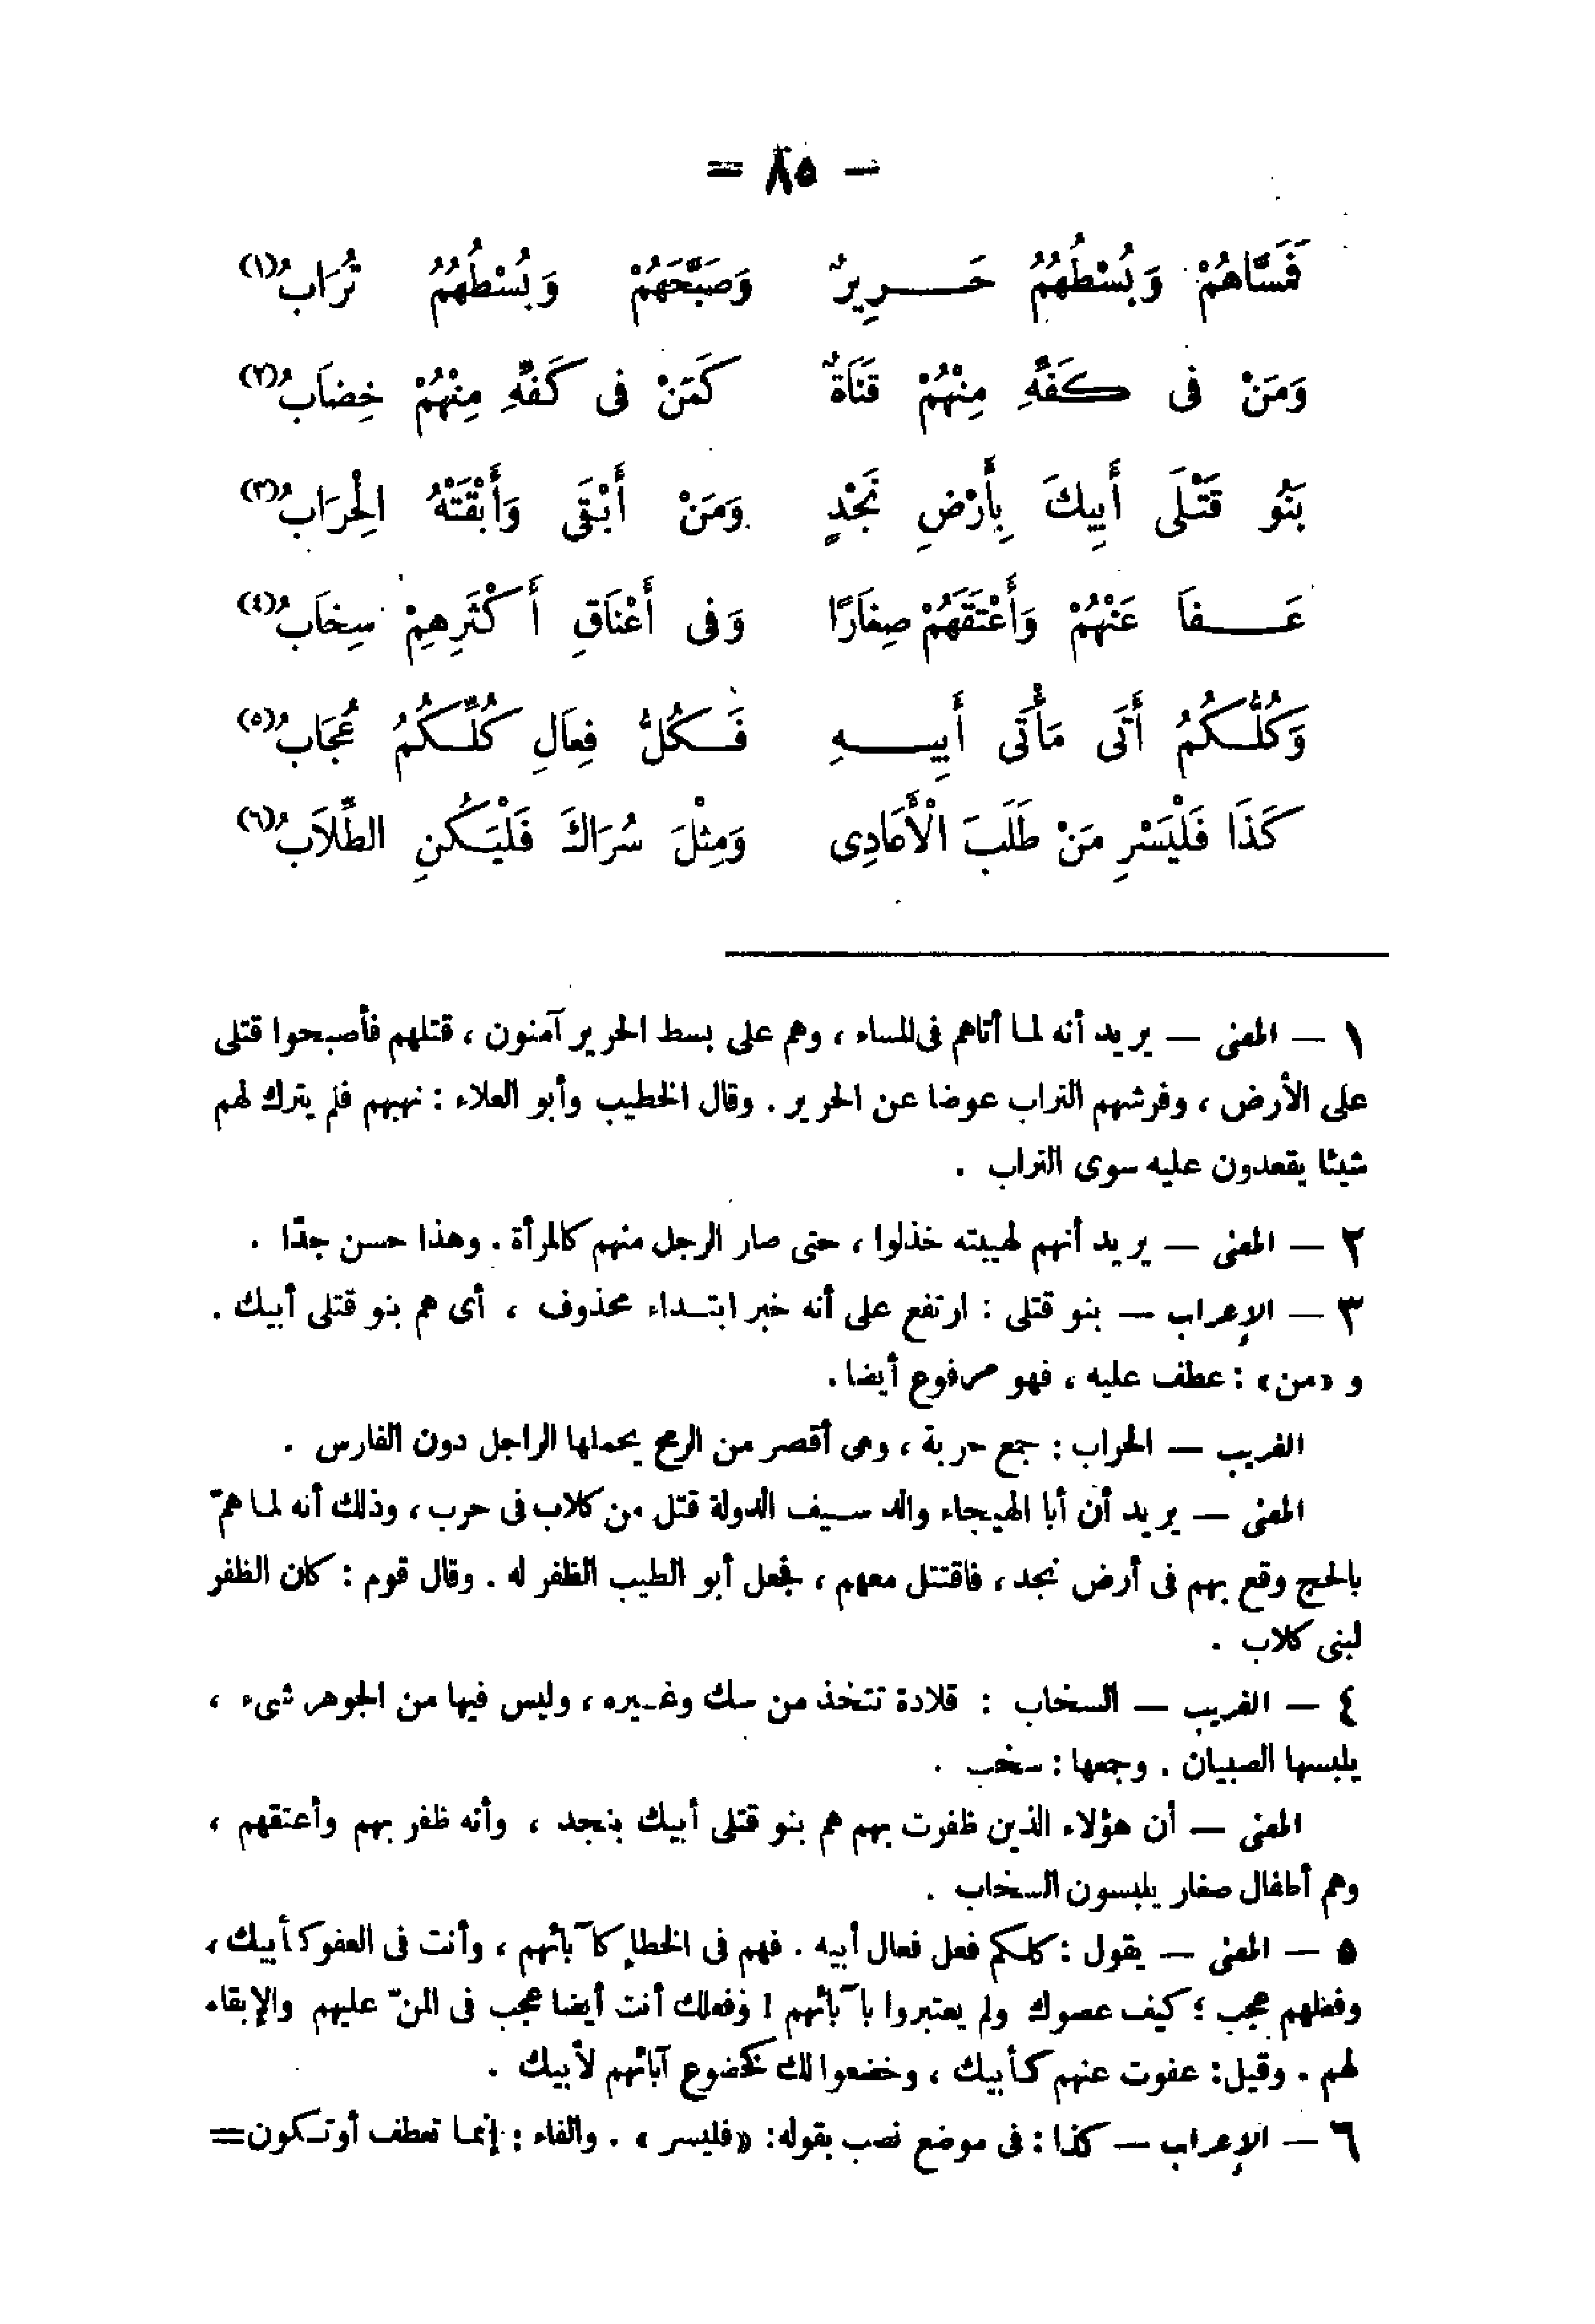 – ٨٥ =
فَمَسَّاهُمْ وَبُسْطُهُمُ حَـــرِيرٌ وَصَبَّحَهُمْ وَبُسْطُهُمُ تُرَابُ(١)
وَمَنْ فى كَفِّهِ مِنْهُمْ قَنَاةٌ كَمَنْ فى كَفِّهِ مِنْهُمْ خِضَابُ(٢)
بَنُو قَتْلَى أَبِيكَ بِأَرْضِ نَجْدٍ وَمَنْ أَبْقَى وَأَبْقَتْهُ الْحِرَابُ(٣)
عَـــفَا عَنْهُمْ وَأَعْتَقَهُمْ صِغَارًا وَفى أَعْنَاقِ أَكْثَرِهِمْ سِخَابُ(٤)
وَكُلُّـكُمُ أَتَى مَأْتَى أَبِيـــهِ فَـكُلُّ فِعَالِ كُلِّـكُمُ عُجَابُ(٥)
كَذَا فَلْيَسْرِ مَنْ طَلَبَ الْأَعَادِى وَمِثْلَ سُرَاكَ فَلْيَـكُنِ الطِّلَابُ(٦)
١ – المعنى – يريد أنه لما أتاهم فى المساء ، وهم على بسط الحرير آمنون ، قتلهم فأصبحوا قتلى
على الأرض ، وفرشهم التراب عوضا عن الحرير . وقال الخطيب وأبو العلاء : نهبهم فلم يترك لهم
شيئا يقعدون عليه سوى التراب .
٢ – المعنى – يريد أنهم لهيبته خذلوا ، حتى صار الرجل منهم كالمرأة . وهذا حسن جدّا .
٣ – الإعراب – بنو قتلى : ارتفع على أنه خبر ابتـداء محذوف ، أى هم بنو قتلى أبيك .
و «من» : عطف عليه ، فهو مرفوع أيضا .
الغريب – الحراب : جمع حربة ، وهى أقصر من الرمح يحملها الراجل دون الفارس .
المعنى – يريد أن أبا الهيجاء والد سـيف الدولة قتل من كلاب فى حرب ، وذلك أنه لما همّ
بالحج وقع بهم فى أرض نجد ، فاقتتل معهم ، فجعل أبو الطيب الظفر له . وقال قوم : كان الظفر
لبنى كلاب .
٤ – الغريب – السخاب : قلادة تتخذ من سك وغـيره ، وليس فيها من الجوهر شىء ،
يلبسها الصبيان . وجمعها : سخب .
المعنى – أن هؤلاء الذين ظفرت بهم هم بنو قتلى أبيك بنجد ، وأنه ظفر بهم وأعتقهم ،
وهم أطفال صغار يلبسون السخاب .
٥ – المعنى – يقول : كلـكم فعل فعال أبيه . فهم فى الخطإ كآبائهم ، وأنت فى العفو كأبيك ،
وفعلهم عجب ؛ كيف عصوك ولم يعتبروا بآبائهم ! وفعلك أنت أيضا عجب فى المنّ عليهم والإبقاء
لهم . وقيل : عفوت عنهم كأبيك ، وخضعوا لك كخضوع آبائهم لأبيك .
٦ – الإعراب – كذا : فى موضع نصب بقوله : «فليسر» . والفاء : إنما تعطف أو تـكون=